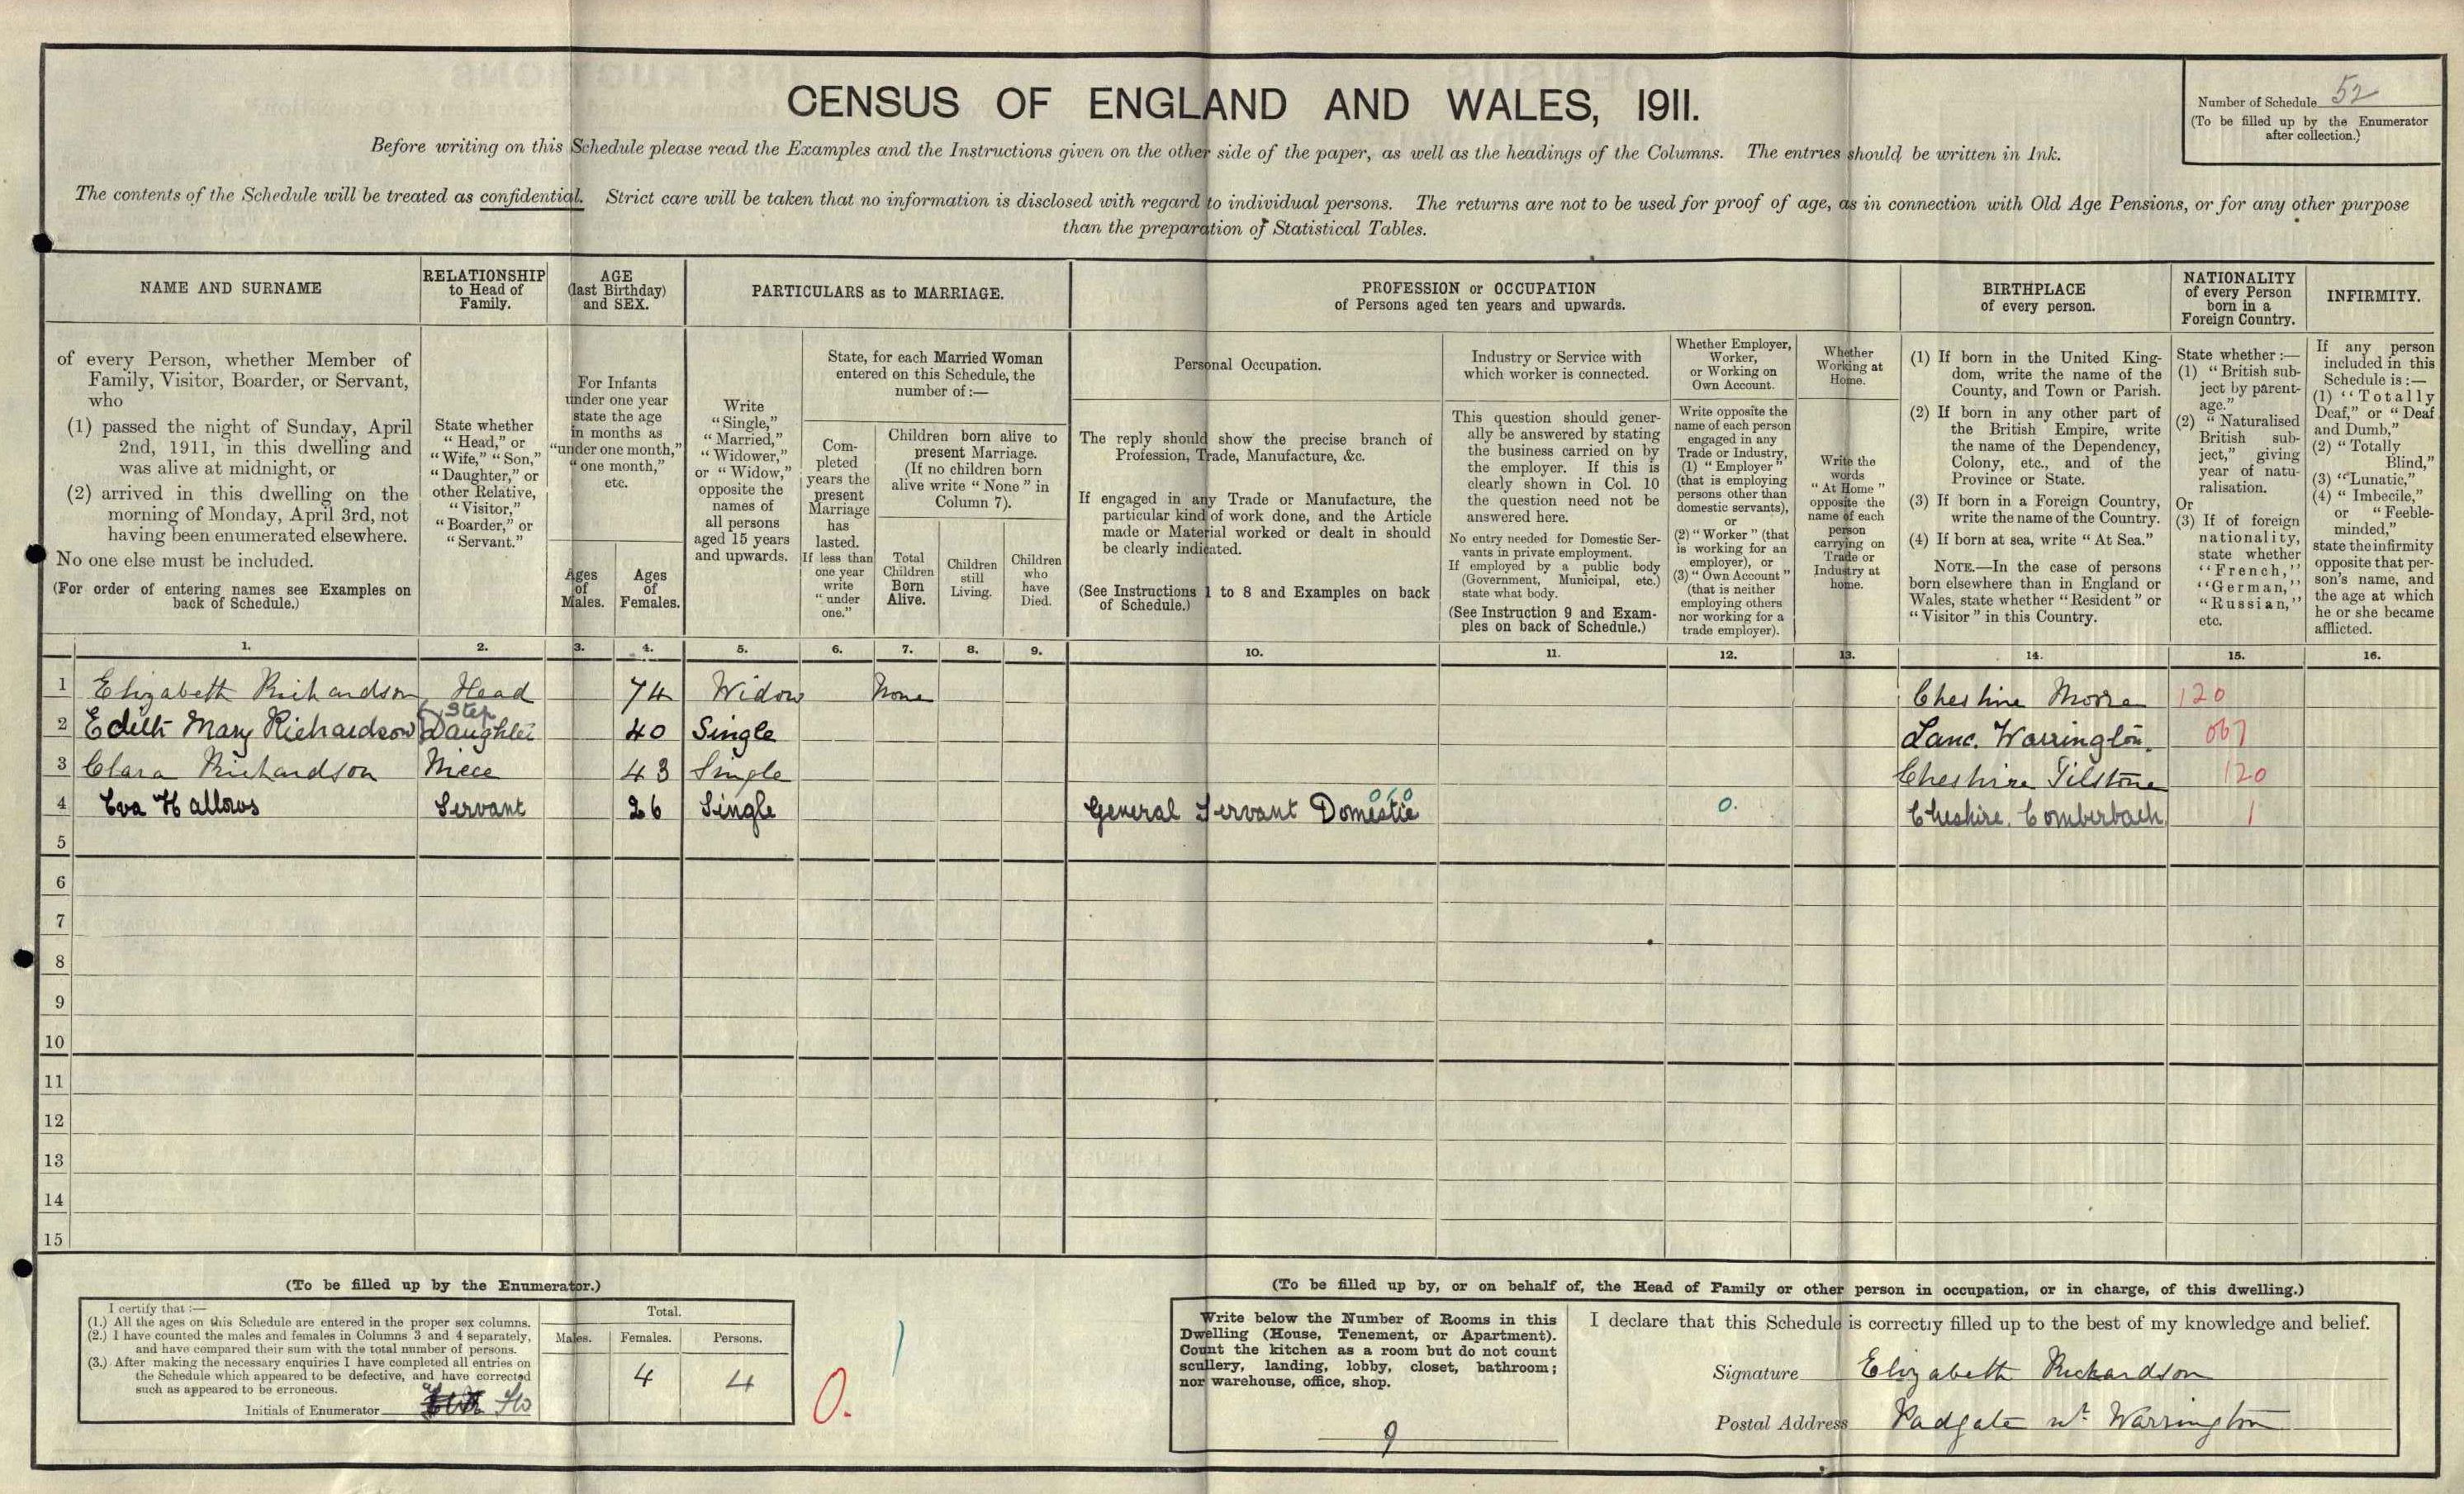 CENSUS OF ENGLAND AND WALES, 1911.
Number of Schedule 52
(To be filled up by the Enumerator
after collection.)
Before writing on this Schedule please read the Examples and the Instructions given on the other side of the paper, as well as the headings of the Columns. The entries should be written in Ink.
The contents of the Schedule will be treated as confidential. Strict care will be taken that no information is disclosed with regard to individual persons. The returns are not to be used for proof of age, as in connection with Old Age Pensions, or for any other purpose
than the preparation of Statistical Tables.
NAME AND SURNAME
of every Person, whether Member of
Family, Visitor, Boarder, or Servant,
who
(1) passed the night of Sunday, April
2nd, 1911, in this dwelling and
was alive at midnight, or
(2) arrived in this dwelling on the
morning of Monday, April 3rd, not
having been enumerated elsewhere.
No one else must be included.
(For order of entering names see Examples on
back of Schedule.)
RELATIONSHIP
to Head of
Family.
State whether
"Head," or
"Wife," "Son,"
"Daughter," or
other Relative,
"Visitor,"
"Boarder," or
"Servant."
AGE
(last Birthday)
and SEX.
For Infants
under one year
state the age
in months as
"under one month,"
"one month,"
etc.
Ages
of
Males.
Ages
of
Females.
PARTICULARS as to MARRIAGE.
Write
"Single,"
"Married,"
"Widower,"
or "Widow,"
opposite the
names of
all persons
aged 15 years
and upwards.
State, for each Married Woman
entered on this Schedule, the
number of:—
Com-
pleted
years the
present
Marriage
has
lasted.
If less than
one year
write
"under
one."
Children born alive to
present Marriage.
(If no children born
alive write "None" in
Column 7).
Total
Children
Born
Alive.
Children
still
Living.
Children
who
have
Died.
PROFESSION or OCCUPATION
of Persons aged ten years and upwards.
Personal Occupation.
The reply should show the precise branch of
Profession, Trade, Manufacture, &c.
If engaged in any Trade or Manufacture, the
particular kind of work done, and the Article
made or Material worked or dealt in should
be clearly indicated.
(See Instructions 1 to 8 and Examples on back
of Schedule.)
Industry or Service with
which worker is connected.
This question should gener-
ally be answered by stating
the business carried on by
the employer. If this is
clearly shown in Col. 10
the question need not be
answered here.
No entry needed for Domestic Ser-
vants in private employment.
If employed by a public body
(Government, Municipal, etc.)
state what body.
(See Instruction 9 and Exam-
ples on back of Schedule.)
Whether Employer,
Worker,
or Working on
Own Account.
Write opposite the
name of each person
engaged in any
Trade or Industry,
(1) "Employer"
(that is employing
persons other than
domestic servants),
or
(2) "Worker" (that
is working for an
employer), or
(3) "Own Account"
(that is neither
employing others
nor working for a
trade employer).
Whether
Working at
Home.
Write the
words
"At Home"
opposite the
name of each
person
carrying on
Trade or
Industry at
home.
BIRTHPLACE
of every person.
(1) If born in the United King-
dom, write the name of the
County, and Town or Parish.
(2) If born in any other part of
the British Empire, write
the name of the Dependency,
Colony, etc., and of the
Province or State.
(3) If born in a Foreign Country,
write the name of the Country.
(4) If born at sea, write "At Sea."
NOTE.—In the case of persons
born elsewhere than in England or
Wales, state whether "Resident" or
"Visitor" in this Country.
NATIONALITY
of every Person
born in a
Foreign Country.
State whether:—
(1) "British sub-
ject by parent-
age."
(2) "Naturalised
British sub-
ject," giving
year of natu-
ralisation.
Or
(3) If of foreign
nationality,
state whether
"French,"
"German,"
"Russian,"
etc.
INFIRMITY.
If any person
included in this
Schedule is:—
(1) "Totally
Deaf," or "Deaf
and Dumb,"
(2) "Totally
Blind,"
(3) "Lunatic,"
(4) "Imbecile,"
or "Feeble-
minded,"
state the infirmity
opposite that per-
son's name, and
the age at which
he or she became
afflicted.
1. 2. 3. 4. 5. 6. 7. 8. 9. 10. 11. 12. 13. 14. 15. 16.
1 Elizabeth Richardson Head 74 Widow None Cheshire Moore 120
Step
2 Edith Mary Richardson Daughter 40 Single Lanc. Warrington. 067
3 Clara Richardson Niece 43 Single Cheshire Tilstone 120
4 Eva Hallows Servant 26 Single General Servant Domestic 0. Cheshire. Comberbach 1
5
6
7
8
9
10
11
12
13
14
15
(To be filled up by the Enumerator.)
I certify that:—
(1.) All the ages on this Schedule are entered in the proper sex columns.
(2.) I have counted the males and females in Columns 3 and 4 separately,
and have compared their sum with the total number of persons.
(3.) After making the necessary enquiries I have completed all entries on
the Schedule which appeared to be defective, and have corrected
such as appeared to be erroneous.
Initials of Enumerator
Total.
Males. Females. Persons.
4 4
0.
(To be filled up by, or on behalf of, the Head of Family or other person in occupation, or in charge, of this dwelling.)
Write below the Number of Rooms in this
Dwelling (House, Tenement, or Apartment).
Count the kitchen as a room but do not count
scullery, landing, lobby, closet, bathroom;
nor warehouse, office, shop.
9
I declare that this Schedule is correctly filled up to the best of my knowledge and belief.
Signature Elizabeth Richardson
Postal Address Padgate nr Warrington